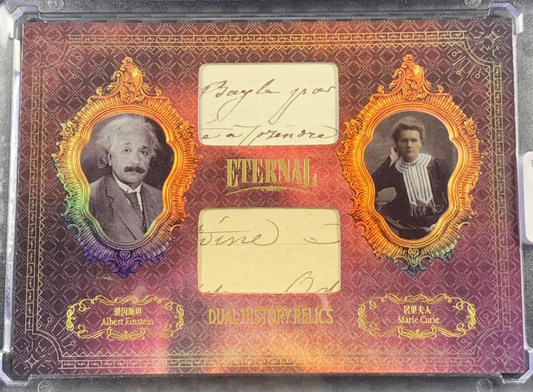 Bayle par
e à prendre
ETERNAL
DUAL HISTORY RELICS
爱因斯坦
Albert Einstein
居里夫人
Marie Curie